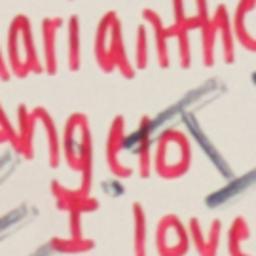 arianthe
Angelo
I love